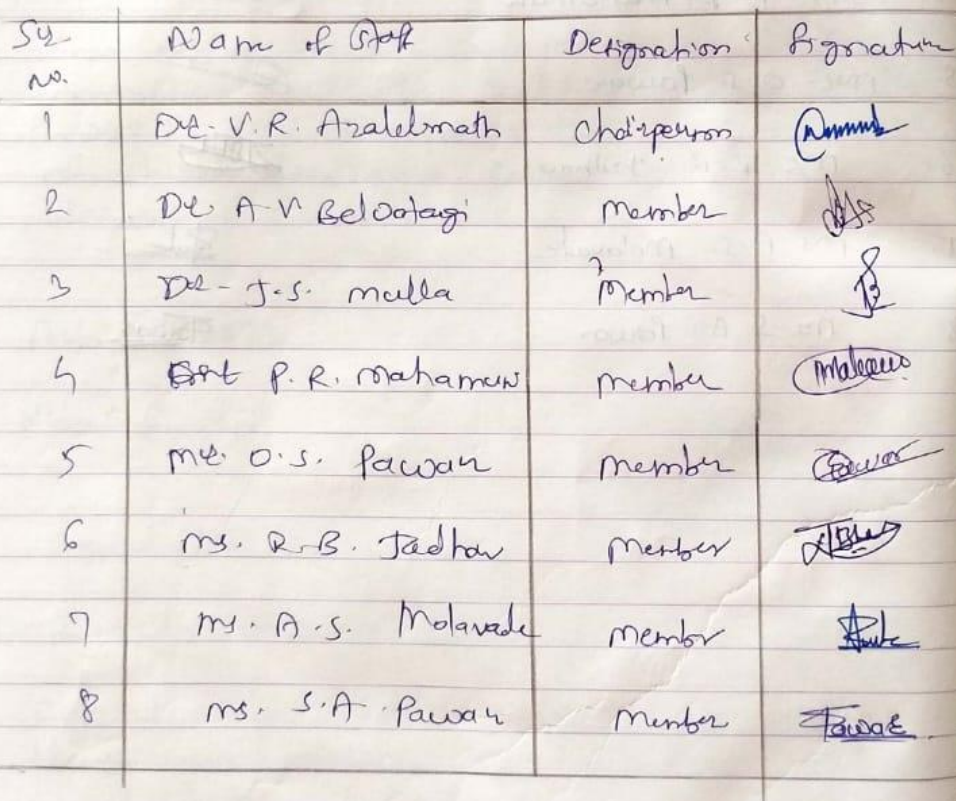 Sr Name of Staff Designation Signature
No.
1 Dr. V. R. Azalelmath Chairperson
2 Dr A V Beldatagi Member
3 Dr - J.S. Mulla Member
4 P. R. Mahamuni Member
5 Mr. O.S. Pawar Member Pawar
6 Ms. R.B. Jadhav Member
7 Ms. A.S. Molavade Member
8 Ms. S.A. Pawar Member Pawar